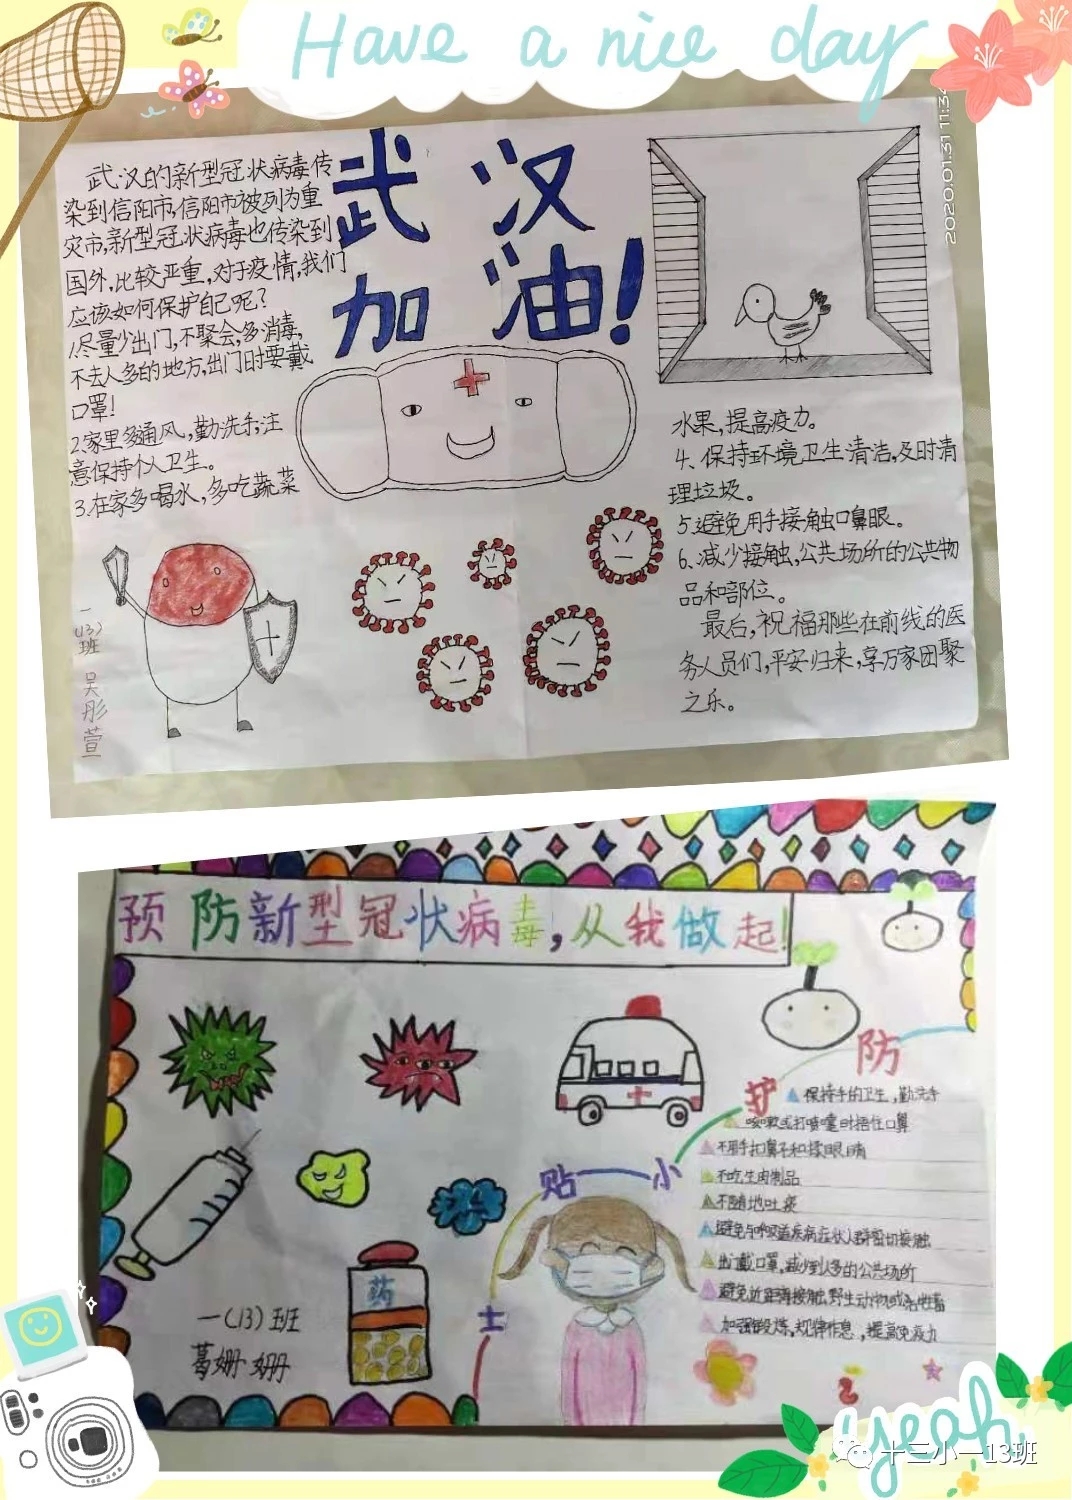 Have a nice day
2020.01.31 11:34
武汉
加油!
武汉的新型冠状病毒传
染到信阳市,信阳市被列为重
灾市,新型冠状病毒也传染到
国外,比较严重,对于疫情,我们
应该如何保护自己呢?
1.尽量少出门,不聚会,多消毒,
不去人多的地方,出门时要戴
口罩!
2.家里多通风,勤洗手,注
意保持个人卫生。
3.在家多喝水,多吃蔬菜
水果,提高疫力。
4、保持环境卫生清洁,及时清
理垃圾。
5.避免用手接触口鼻眼。
6、减少接触,公共场所的公共物
品和部位。
最后,祝福那些在前线的医
务人员们,平安归来,享万家团聚
之乐。
一(13)班 吴彤萱
预防新型冠状病毒,从我做起!
防护小贴士
保持手的卫生,勤洗手
咳嗽或打喷嚏时捂住口鼻
不用手扣鼻子和揉眼睛
不吃生肉制品
不随地吐痰
避免与呼吸道疾病症状人群密切接触
出门戴口罩,减少到人多的公共场所
避免近距离接触野生动物或
加强锻炼,规律作息,提高免疫力
药
一(13)班
葛姗姗
yeah
十三小一13班